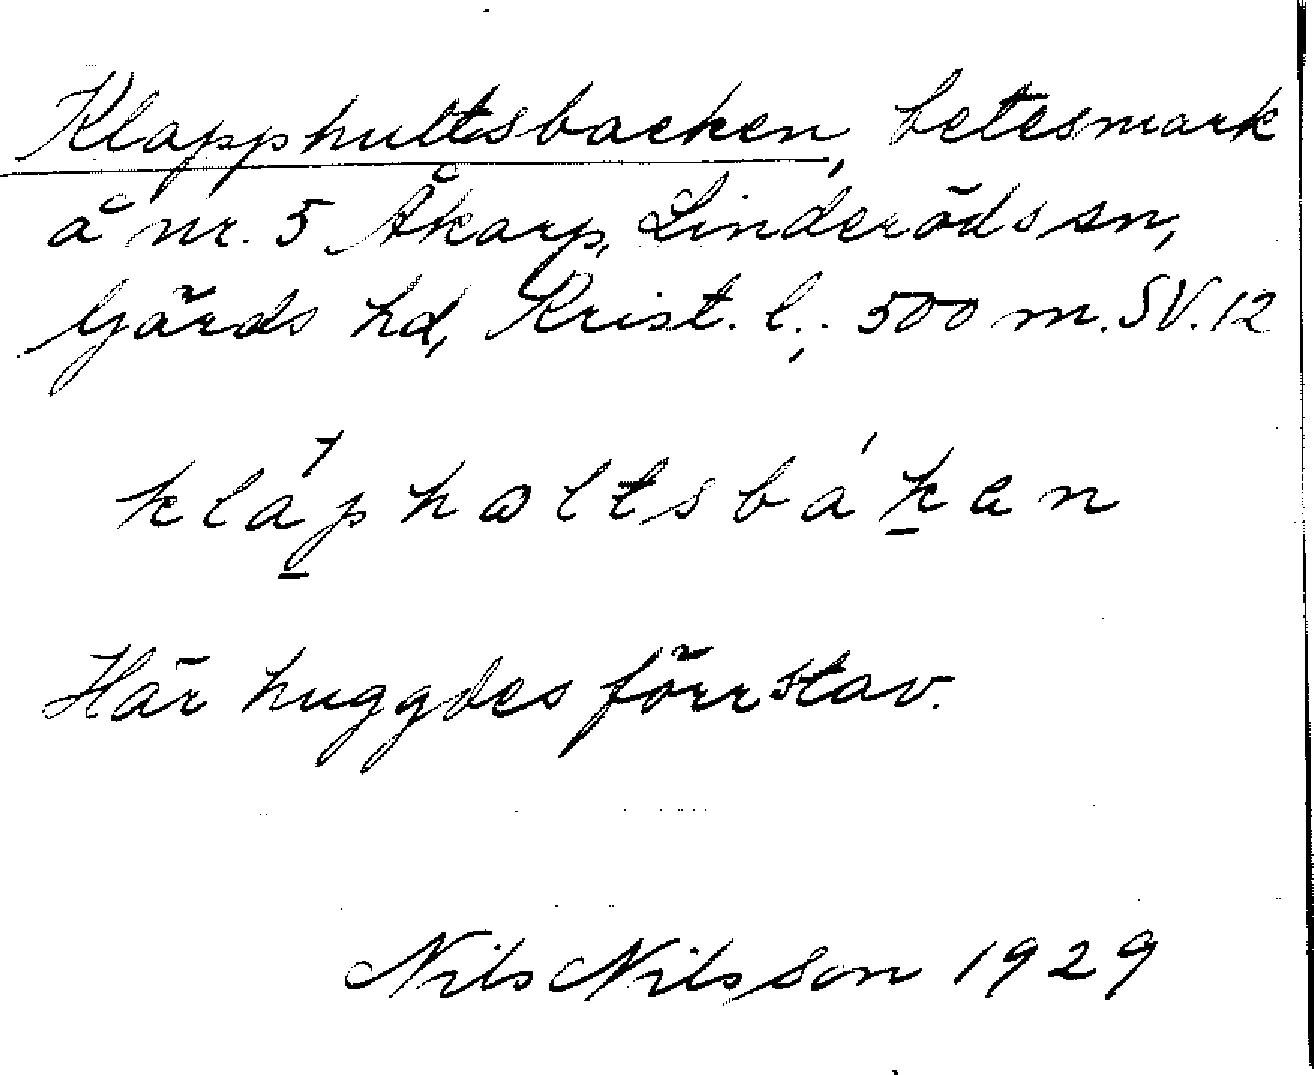 Klapphultsbacken, betesmark
å nr. 5 Åkarp, Linderöds sn,
Gärds hd, Krist. l., 500 m. SV. 12
klápholtsbáken
Här huggdes förr stav.
Nils Nilsson 1929